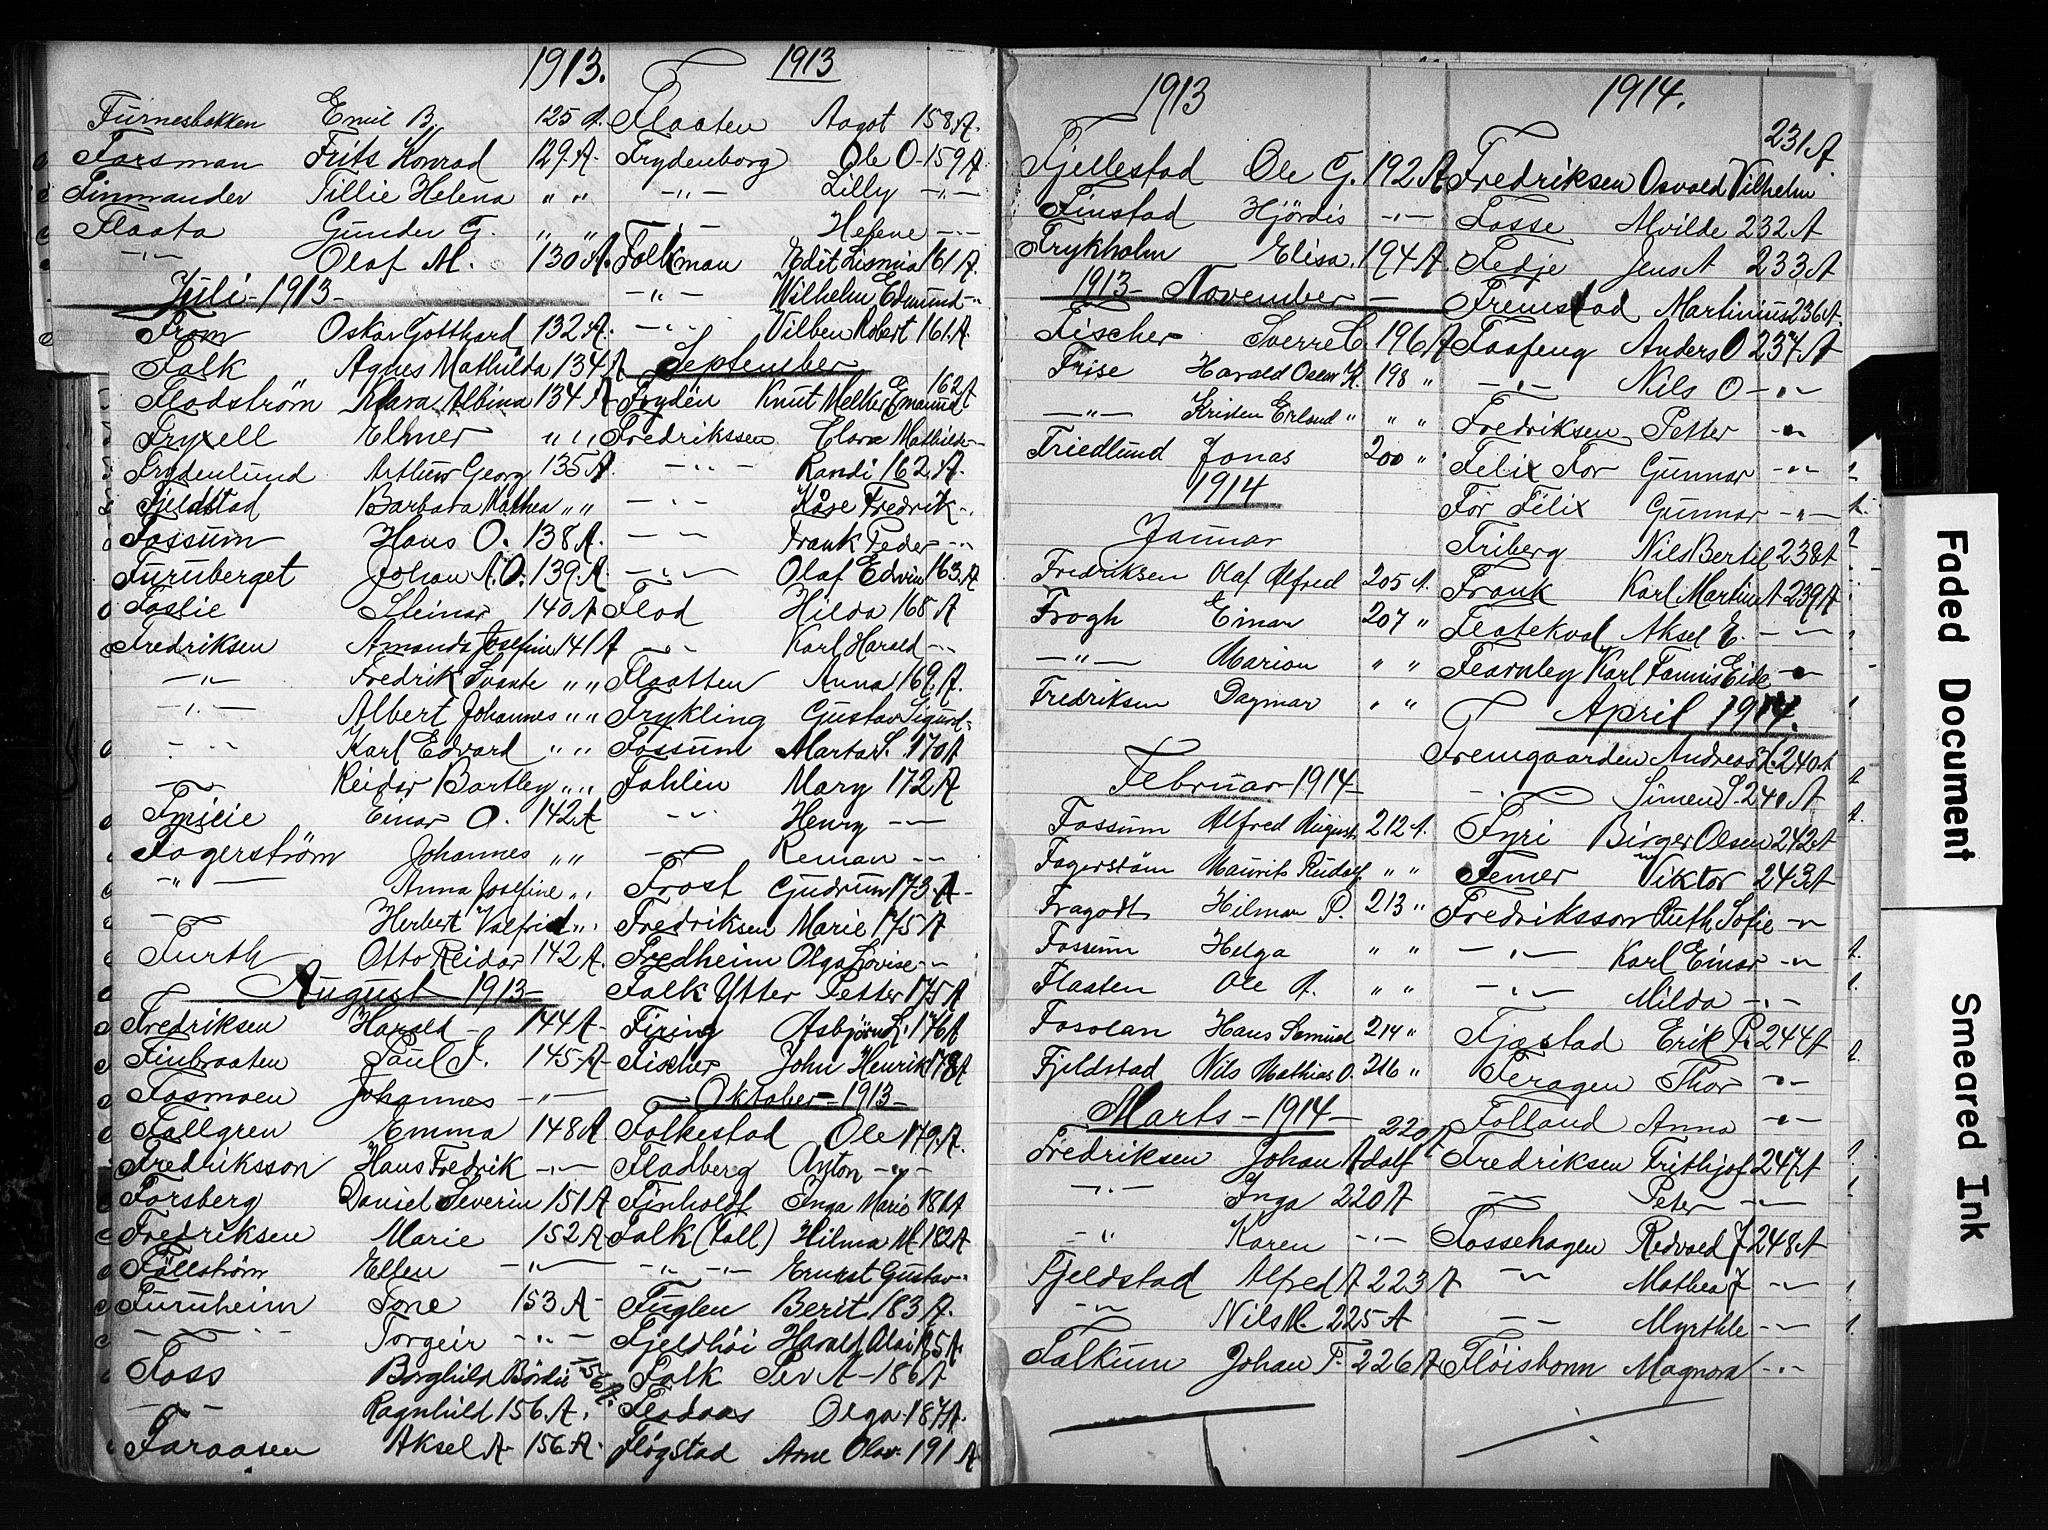 1913.
Furnesbakken Emil B. 125 A.
Forsman Frits Konrad 129. A.
Finmander Tillie Helena " "
Flaata Gunder G. " "
-"- Olaf M. 130 A.
Juli - 1913 -
From Oskar Gotthard 132 A.
Falk Agnes Mathilda 134 A
Flodström Klara Albina 134 A
Fryxell Elmer " "
Frydenlund Arthur Georg 135 A
Fjeldstad Barbara Mathea " "
Fossum Hans O. 138 A.
Furuberget Johan A. O. 139. A.
Foslie Steinar 140 A
Fredriksen Amanda Josefine 141 A
-"- Fredrik Svante " "
-"- Albert Johannes " "
-"- Karl Edvard " "
- Reidar Bartley " "
Einar O. 142 A
Fagerström Johannes " "
-"- Anna Josefine " "
- Herbert Valfrid " "
Furth Otto Reidar 142 A.
August 1913 -
Fredriksen Harald - 144 A
Finbraaten Paul J. 145 A
Fosmoen Johannes -"-
Fallgren Emma 148 A.
Fredriksson Hans Fredrik -"-
Forsberg Daniel Severin 151 A
Fredriksen Marie 152 A
Fällström Ellen -"-
Furuheim Tone 153 A
-"- Torgeir -"-
Foss Borghild 156 A.
-"- Ragnhild 156. A.
Faraasen Aksel A 156 A.
1913
Flaaten Aagot 158 A.
Frydenborg Ole O - 159 A.
-"- Lilly -"-
-"- Helene -"-
Folkman Edit 161 A.
-"- Wilhelm Edmund -"-
-"- Vilben Robert 161. A.
September
Frydén Knut Melker Emanuel 162 A
Fredrikssen Clara Mathilde -"-
-"- Randi 162. A.
-"- Kåre Fredrik -"-
-"- Frank Peder -"-
-"- Olaf Edvin 163. A
Flod Hilda 168 A
-"- Karl Harald -"-
Flaatten Anna 169. A.
Frykling Gustav Sigurd -"-
Fossum Marta S. 170 A
Fahlin Mary 172 A
-"- Henry -"-
-"- Reman -"-
Frost Gudrun 173. A
Fredriksen Marie 175 A
Fredheim Olga Lovise -"-
Falk Ytter Petter 175 A
Firing Asbjørn L. 176 A
Fischer John Henrik 178 A
Oktober - 1913 -
Folkestad Ole 179. A.
Fladberg Anton -"-
Finholdt Inga Marie 181 A
Falk (Coll) Hilma M. 182 A
-"- -"- Ernst Gustav -"-
Fuglen Berit 183 A.
Fjeldhöi Harald Olai 185 A.
Falk Per A - 186 A
Flodaas Olga 187 A.
Fløgstad Arne Olav. 191 A
1913
Fjellestad Ole G. 192 A
Finstad Hjördis -"-
Frykholm Elisa. 194 A
1913 - November -
Fischer Sverre C. 196 A
Frise Harald Oscar K. 198 "
-"- Kristen Erland " " "
Friedlund Jonas 200 "
1914
Januar
Fredriksen Olaf Alfred 205 A.
Frogh Einar 207 "
-"- Marion " "
Fredriksen Dagmar " "
Februar 1914 -
Fossum Alfred August 212 A.
Fagerstöm Maurits Rudolf " "
Fragodt Hilmar P. 213 "
Fossum Helga " "
Flaaten Ole A. " "
Fosolan Hans Samuel 214 "
Fjeldstad Nils Mathias O. 216 "
Marts - 1914 -
Fredriksen Johan Adolf 220 A
-"- Inga 220 A
-"- Karen -"-
Fjeldstad Alfred A 223 A
-"- Nils M. 225 A
Falkum Johan F. 226 A
1914.
231 A.
Fredriksen Osvald Vilhelm
Fosse Alvilde 232 A
Fedje Jens A 233 A
Fremstad Martinius 236 A.
Faafeng Anders O 237. A
-"- Nils O -"-
Fredriksen Petter -"-
Felix For Gunnar -"-
For Felix Gunnar -"-
Friberg Nils Bertil 238 A
Frank Karl Martin A 239 A
Flatekval Aksel E. -"-
Fearnley Karl Eide -"-
April 1914.
Fremgaarden Andreas H. 240 A
-"- Simen S. 240 A
Fyri Birger Olsen 242 A
Femer Viktor 243 A
Fredriksson Ruth Sofie -"-
-"- Karl Einar -"-
-"- Milda -"-
Fjastad Erik P. 244 A
Feragen Thor -"-
Folland Anna -"-
Fredriksen Frithjof 247 A
-"- Peter -"-
Fossehagen Redvald J 248 A
-"- Mathea J -"-
-"- Myrthle -"-
Fløisbonn Magnora -"-
Faded Document
Smeared Ink